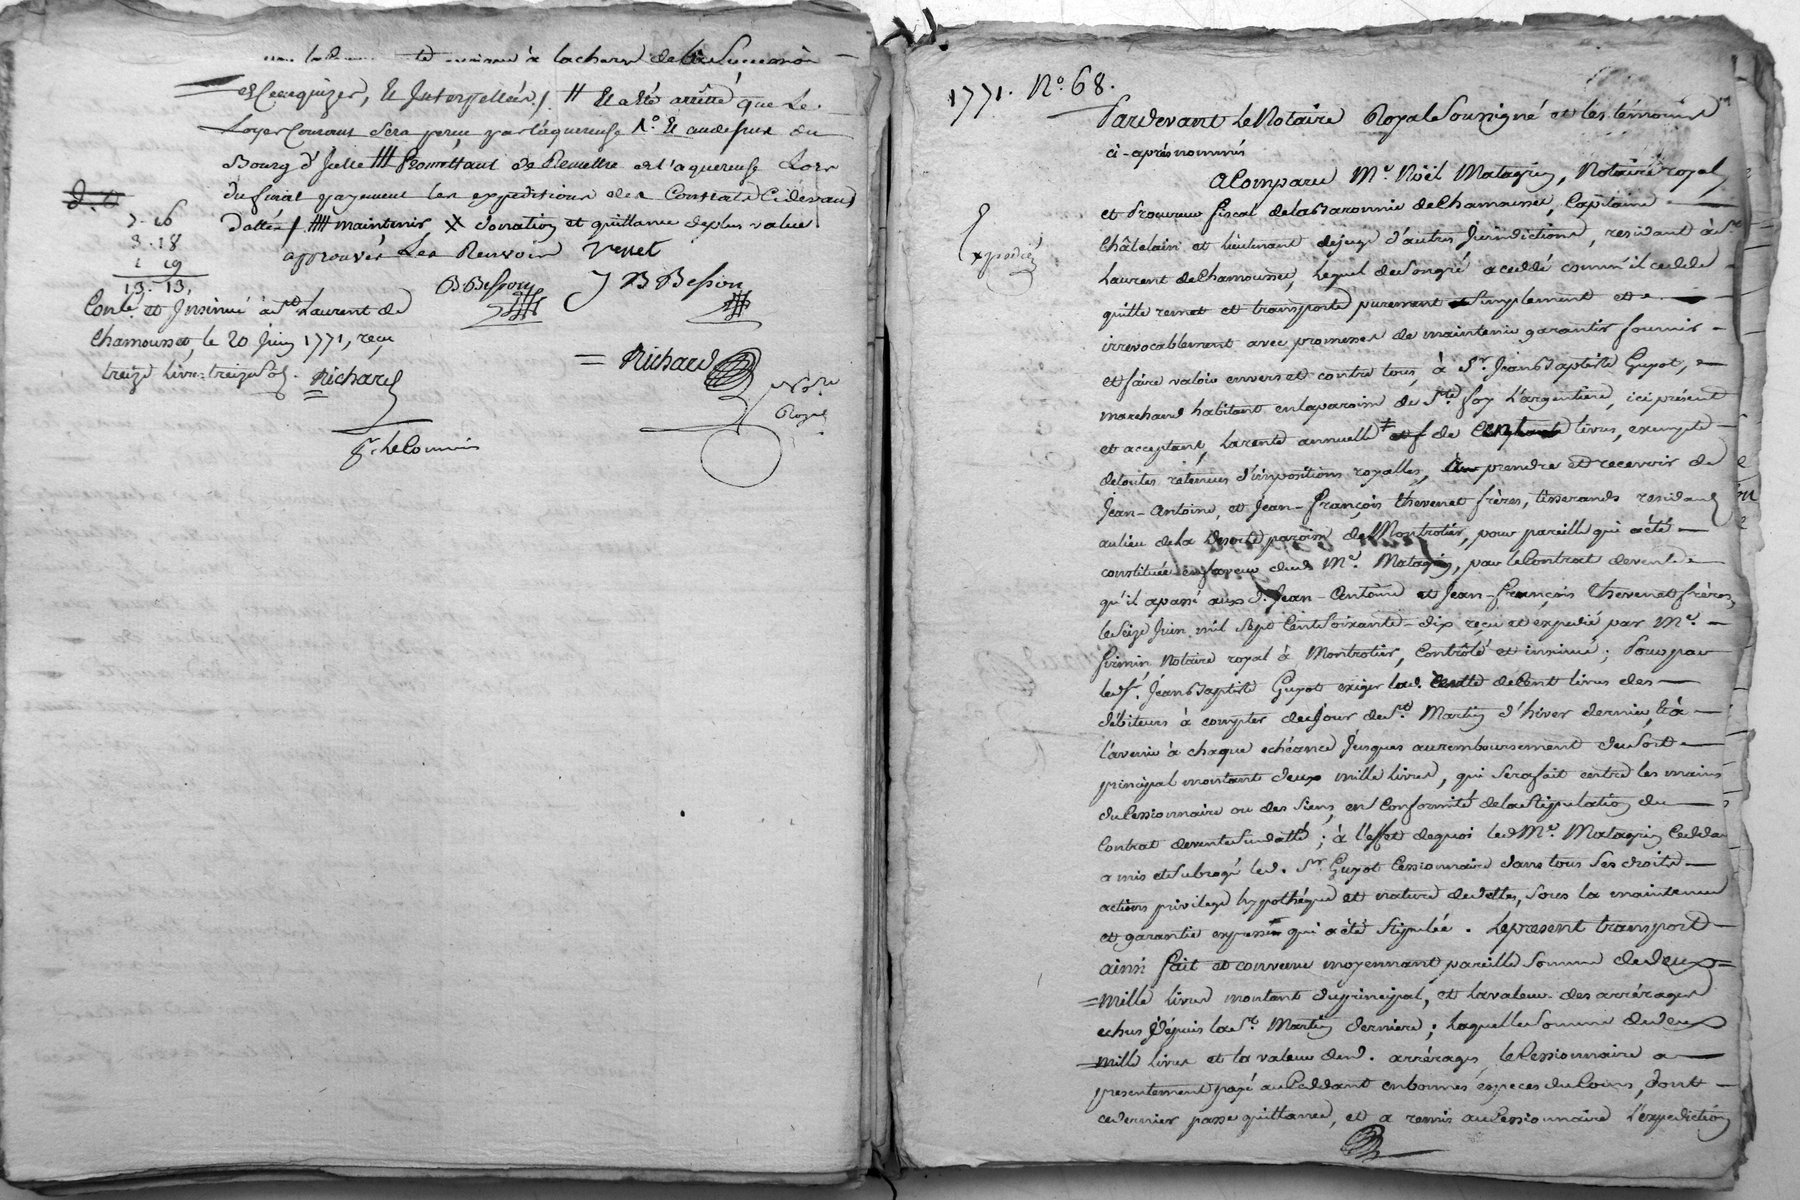 à la charge de la Succession
et Interpellés ./. # Et a été arrêtté que Le
Loyer Courant Sera perçu par l'aquereuse 1.° Et au dessus du
Bourg d' Julie ## Promettant de Remettre à l'aquereuse Lors
du final payement les expeditions des Contrats Cidevant
dattés /. ### maintenir X donation et quittance de plus value
approuvés Les Renvois Venet
7. 16
3. 18
1 19
13. 13.
B. Besson J B Besson
Conlé. et Insinué à St Laurent de
Chamousset, le 20 Juin 1771, reçu
treize livres treize Sols. Richard
Richard
Nore
Royal
pr. le Commis
1771. N.° 68.
Pardevant Le Notaire Royal Soussigné et les témoins
ci-après nommés
A Comparu Me. Noël Matagrin, Notaire royal
et Procureur fiscal de la Baronnie de Chamousset, Capitaine
Châtelain et Lieutenant de juge d'autres Jurisdictions, residant à St
Expedié
Laurent de Chamousset, Lequel de Son gré a ceddé comm'il cedde
quitte remet et transporte purement Simplement et
irrevocablement avec promesses de maintenir garantir fournir
et faire valoir envers et contre tous, à Sr. Jean Baptiste Guyot,
marchand habitant en la paroisse de Ste foy L'argentiere, ici présent
et acceptant, La rente annuelle de Cent livres, exempte
de toutes retenues d'impositions royalles, à prendre et recevoir de
Jean-Antoine, et Jean-François Thevenet frères, tisserands residants
au lieu de La paroisse de Montrotier, pour pareille qui a été
constituée en faveur dud. Me. Matagrin, par le Contrat de vente
qu'il a passé aux d. Jean-Antoine et Jean-françois Thevenet frères,
le Seize Juin mil Sept Cent Soixante-dix reçu et expedié par Me.
Firmin Notaire royal à Montrotier, Contrôlé et insinué; Pour par
led. Sr. Jean Baptiste Guyot exiger lad. Rente de Cent livres des
débiteurs à compter du Jour de St. Martin d'hiver dernier, Et à
l'avenir à chaque echéance Jusques au remboursement du Sort
principal montant deux mille livres, qui Sera fait entre les mains
du Cessionnaire ou des Siens, en Conformité de la Stipulation du
Contrat de vente Sus datté; à l'effet de quoi led. Me. Matagrin Ceddant
a mis et Subrogé led. Sr. Guyot Cessionnaire dans tous Ses droits
actions privilege hypothéque et nature de dettes, Sous la maintenue
et garantie expresse qui a été Stipulée. Le present transport
ainsi fait et convenu moyennant pareille Somme de deux
mille livres montant du principal, et la valeur des arrérages
echus depuis la St. Martin derniere; Laquelle Somme de deux
mille livres et la valeur desd. arrérages le Cessionnaire a
presentement payé au Ceddant en bonnes éspeces du Cours, dont
ce dernier passe quittance, et a remis au Cessionnaire L'expedition